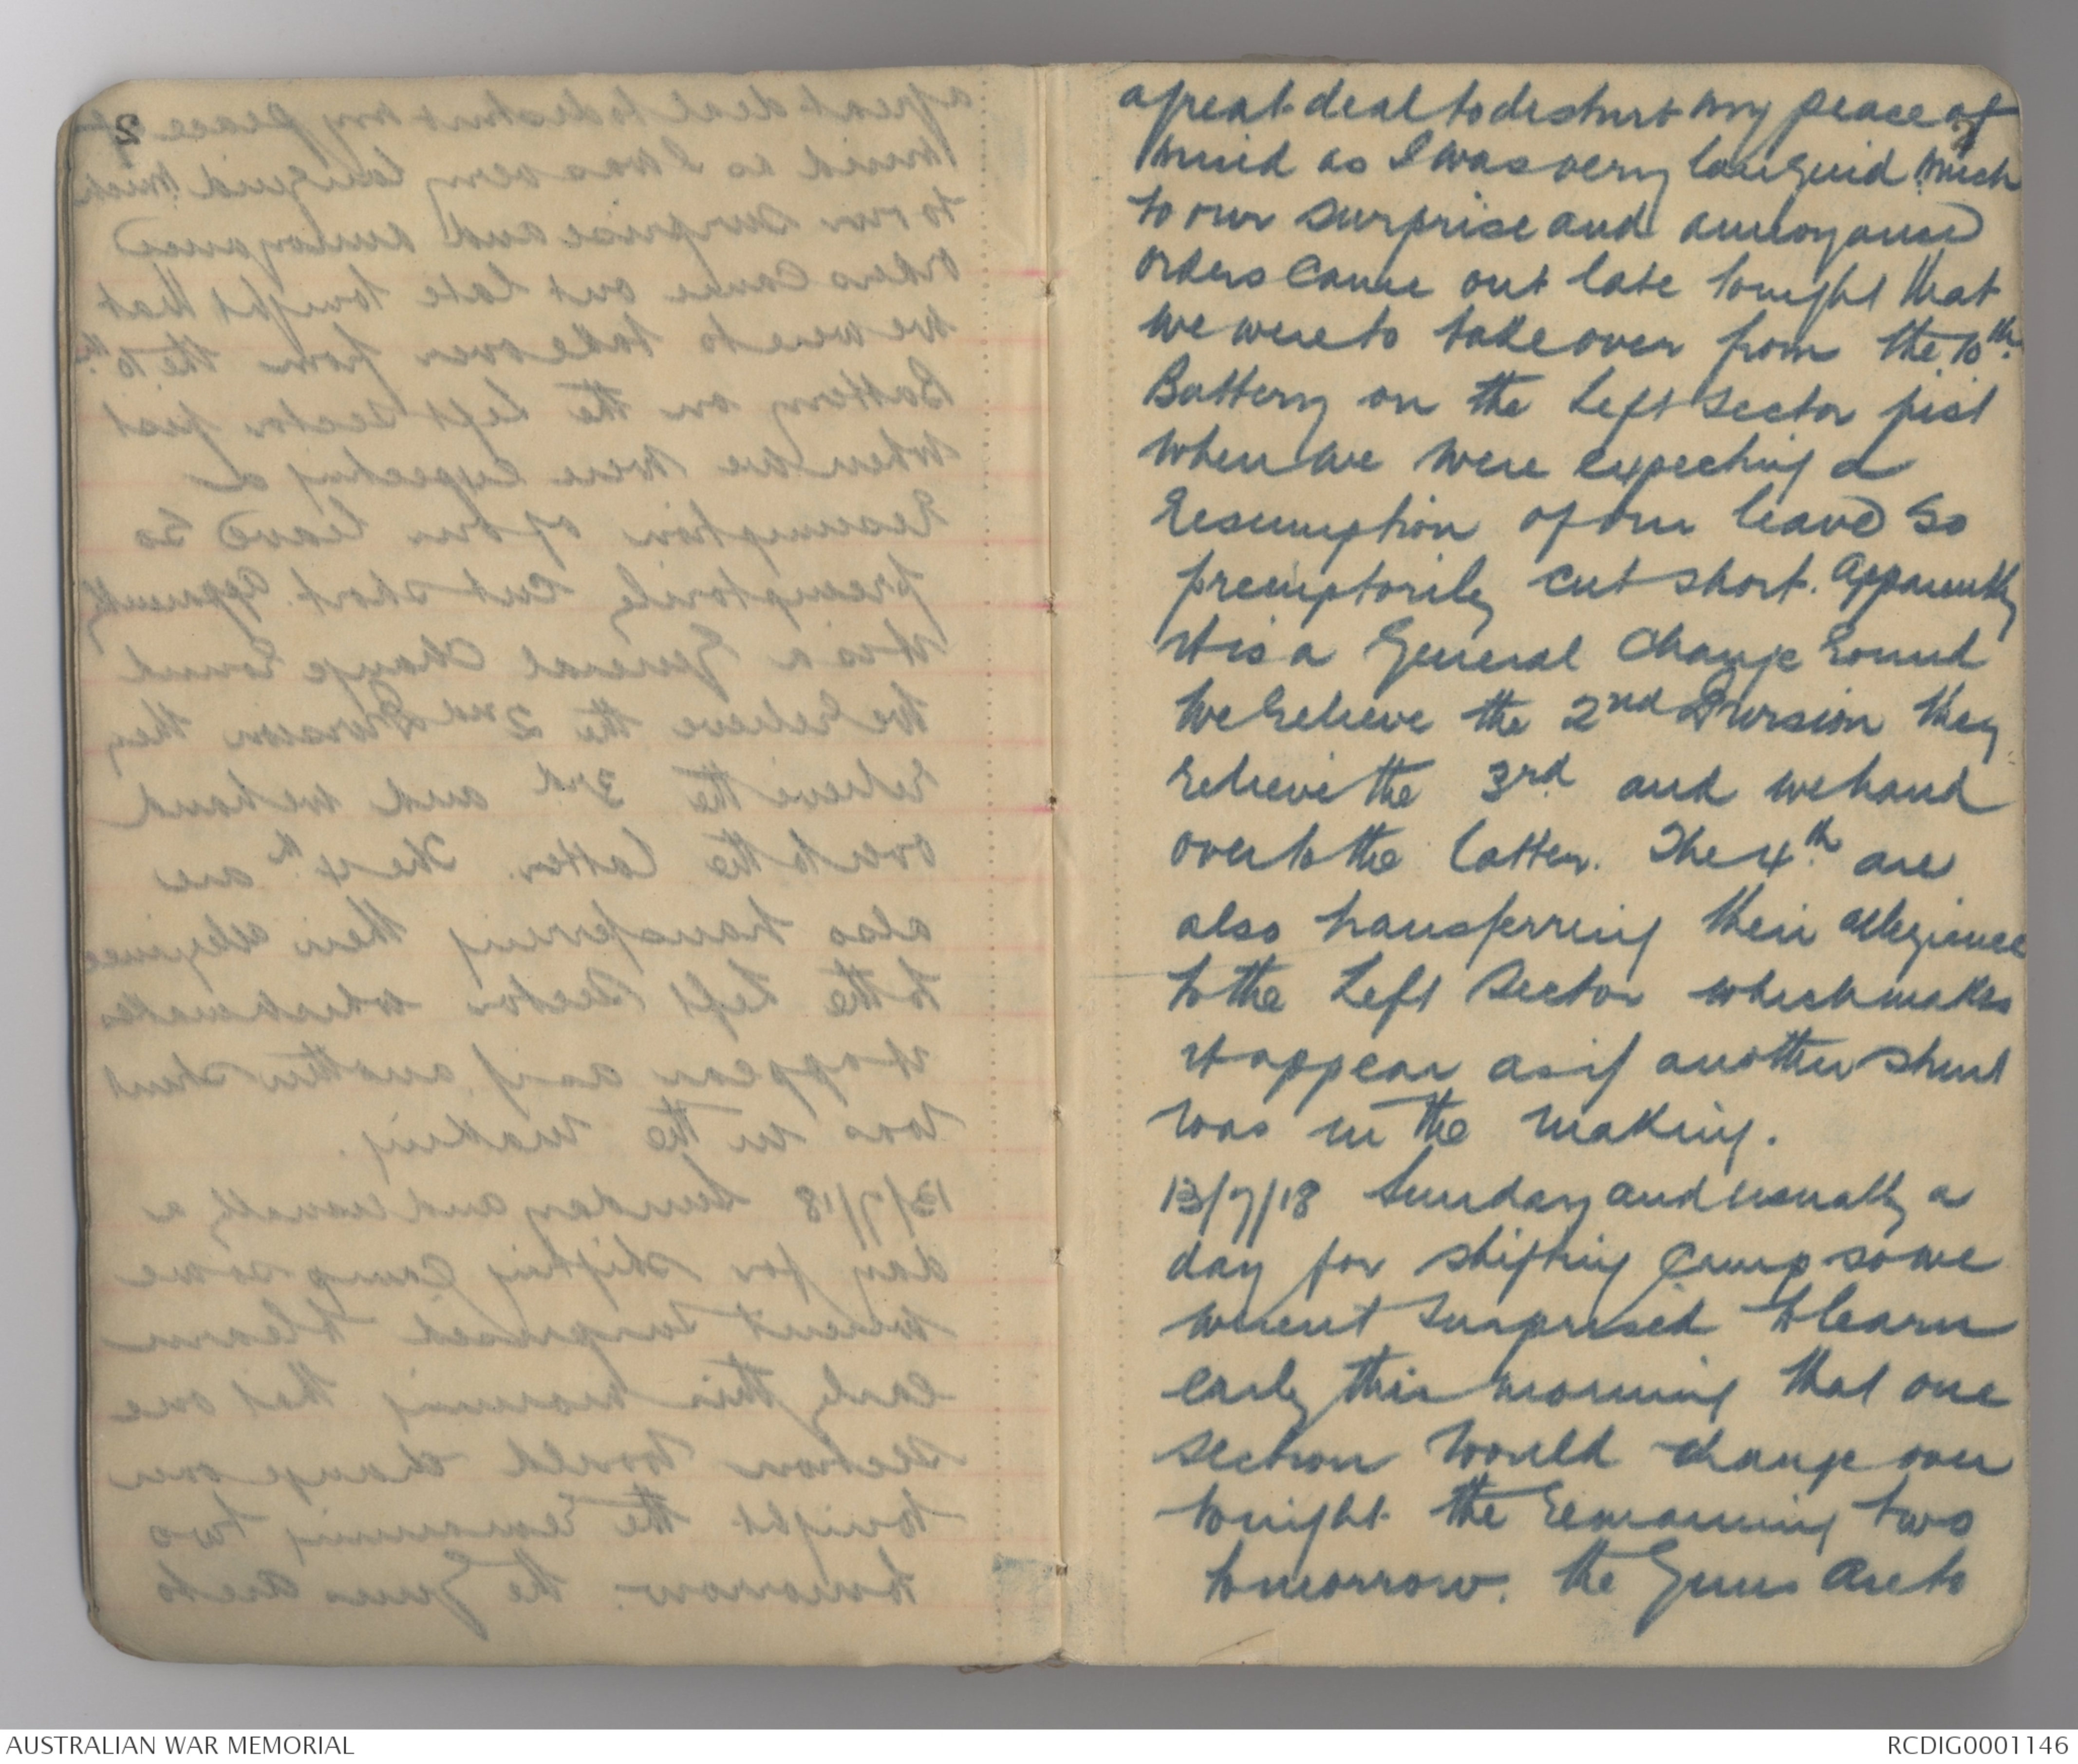 a great deal to disturb my peace of
mind as I was very languid. Much
to our surprise and annoyance
orders came out late tonight that
we were to take over from the 10th.
Battery on the Left Sector just
when we were expecting a
resumption of our leave so
premptorily cut short. Apparently
it is a General Change Round
We relieve the 2nd Division they
relieve the 3rd and we hand
over to the latter. The 4th. are
also transferring their allegience
to the Left Sector which makes
it appear as if another stunt
was in the making.
13/7/18 Sunday and usually a
day for shifting Camp so we
werent surprised to learn
early this morning that one
section would change over
tonight the remaining two
tomorrow. The Guns are to
2
AUSTRALIAN WAR MEMORIAL
RCDIG0001146